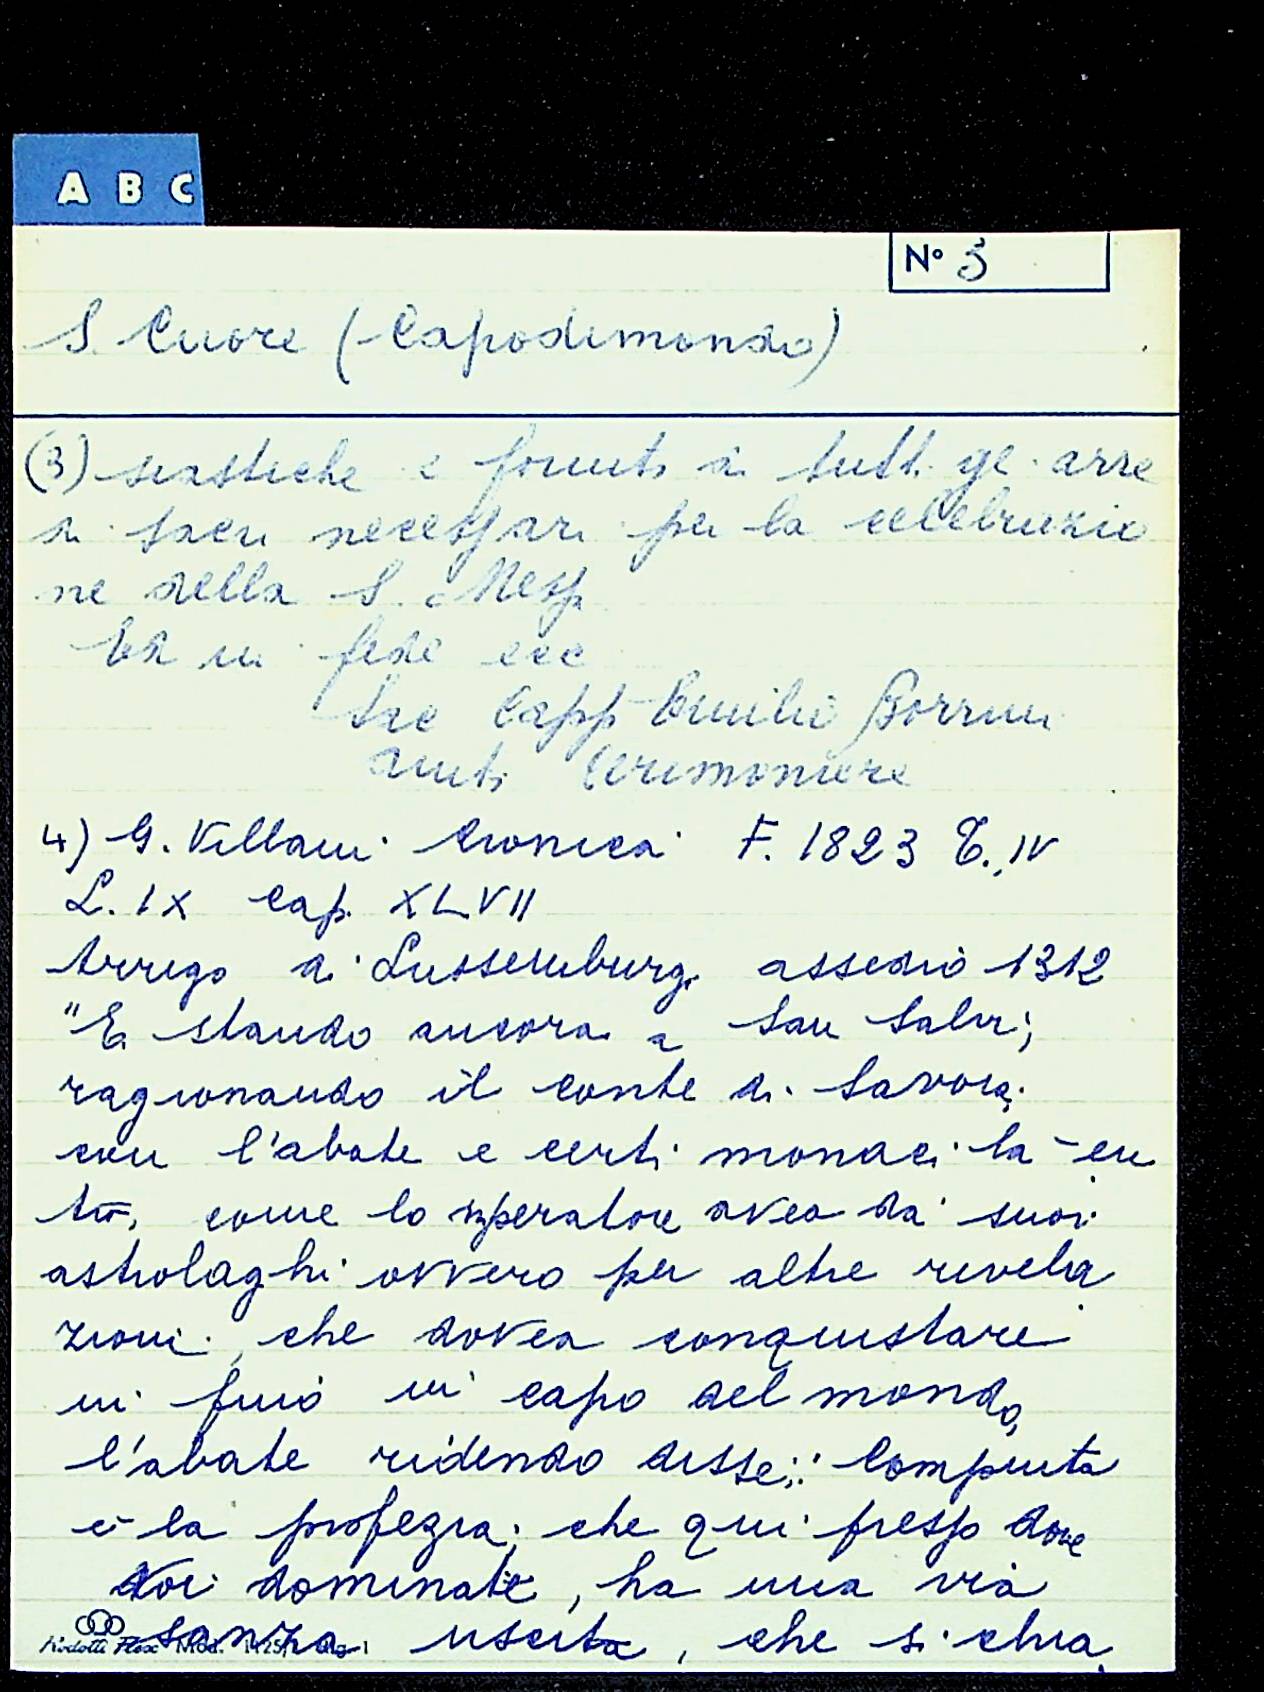 A B C
N° 5
S. Cuore (Capodimondo)
(3) siastiche e forniti di tutti gl. arre
di sacri necessari per la celebrazio
ne della S. Messa
Ed in fede ecc
Sac Capp Emilio Borrini
aiuto Cerimoniere
4) G. Villani Cronica F. 1823 T. IV
L. IX cap. XLVII
Arrigo di Lussemburg. assedio 1312
"E stando ancora a San Salvi,
ragionando il conte di Savoia
con l'abate e certi monaci là en
tro, come lo 'mperatore avea da' suoi
astrolaghi ovvero per altre rivela
zioni, che dovea conquistare
in fino in capo del mondo,
l'abate ridendo disse: Compiuta
è la profezia, che qui presso dove
voi dominate, ha una via
sanza uscita, che si chia
Mod.